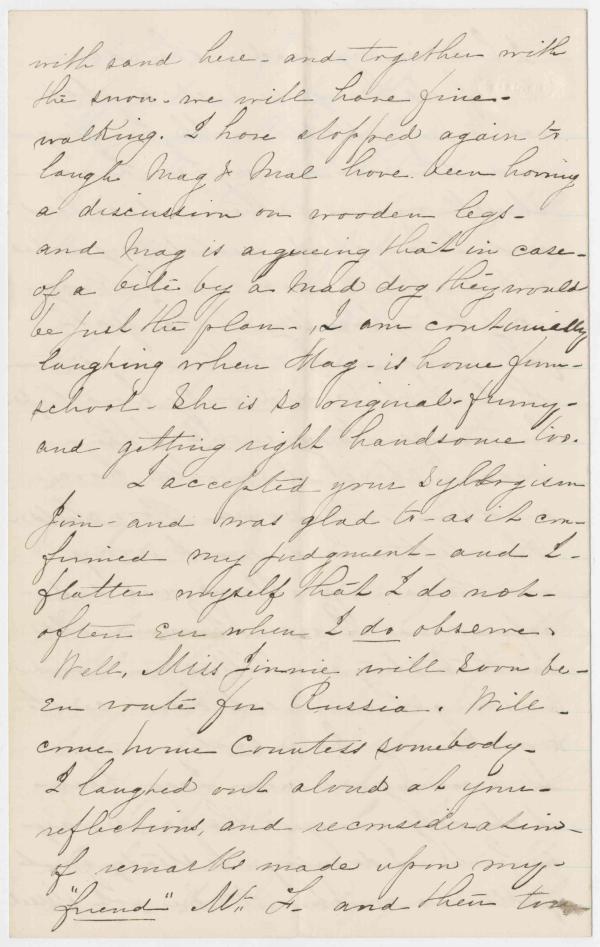 with sand here - and together with
the snow - we will have fine -
walking. I have stopped again to
laugh Mag & Mal have been having
a discussion on wooden legs -
and Mag is argueing that in case -
of a bite by a mad dog they would
be just the plan -, I am continually
laughing when Mag - is home from -
school - She is so original - funny -
and getting right handsome too.
I accepted your Syllogism
Jim - and was glad to - as it con-
firmed my judgment - and I -
flatter myself that I do not -
often Err when I do observe.
Well, Miss Jinnie will soon be -
En route for Russia. Will -
come home Countess somebody -
I laughed out aloud at your -
reflections, and reconsideration -
of remarks made upon my -
"friend" Mr. F. and then too